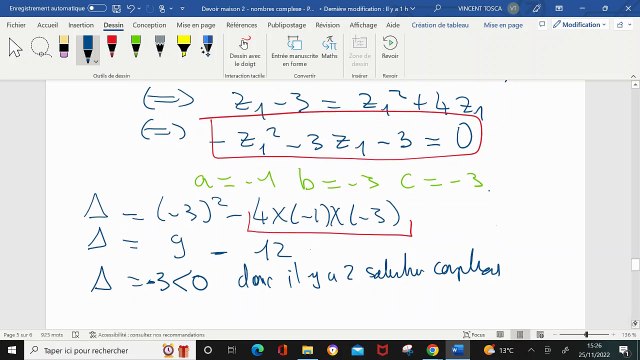 Enregistrement automatique
Devoir maison 2 - nombres complexe - P...
Dernière modification : Il y a 1 h
VINCENT TOSCA
VT
Fichier
Accueil
Insertion
Dessin
Conception
Mise en page
Références
Publipostage
Révision
Affichage
Aide
Création de tableau
Mise en page
Modification
Dessin avec le doigt
Entrée manuscrite en forme
Maths
Zone de dessin
Revoir
Outils de dessin
Interaction tactile
Convertir
Insérer
Revoir
(=) z₁ - 3 = z₁² + 4z₁
(=) - z₁² - 3z₁ - 3 = 0
a = -1 b = -3 c = -3.
Δ = (-3)² - 4×(-1)×(-3)
Δ = 9 - 12
Δ = -3 < 0 donc il y a 2 solution complexes
Page 5 sur 6
923 mots
Accessibilité : consultez nos recommandations
136 %
Taper ici pour rechercher
13°C
15:26
25/11/2022